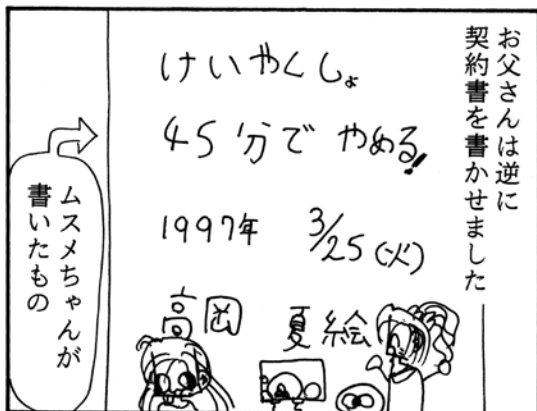 お父さんは逆に
契約書を書かせました
けいやくしょ
45分で やめる!
1997年 3/25(火)
高岡 夏絵
ムスメちゃんが
書いたもの